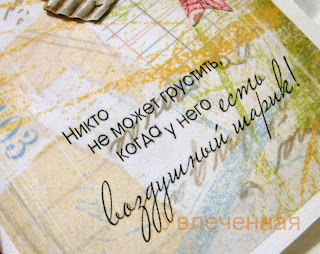 Никто
не может грустить,
когда у него есть
воздушный шарик!
Увлеченная